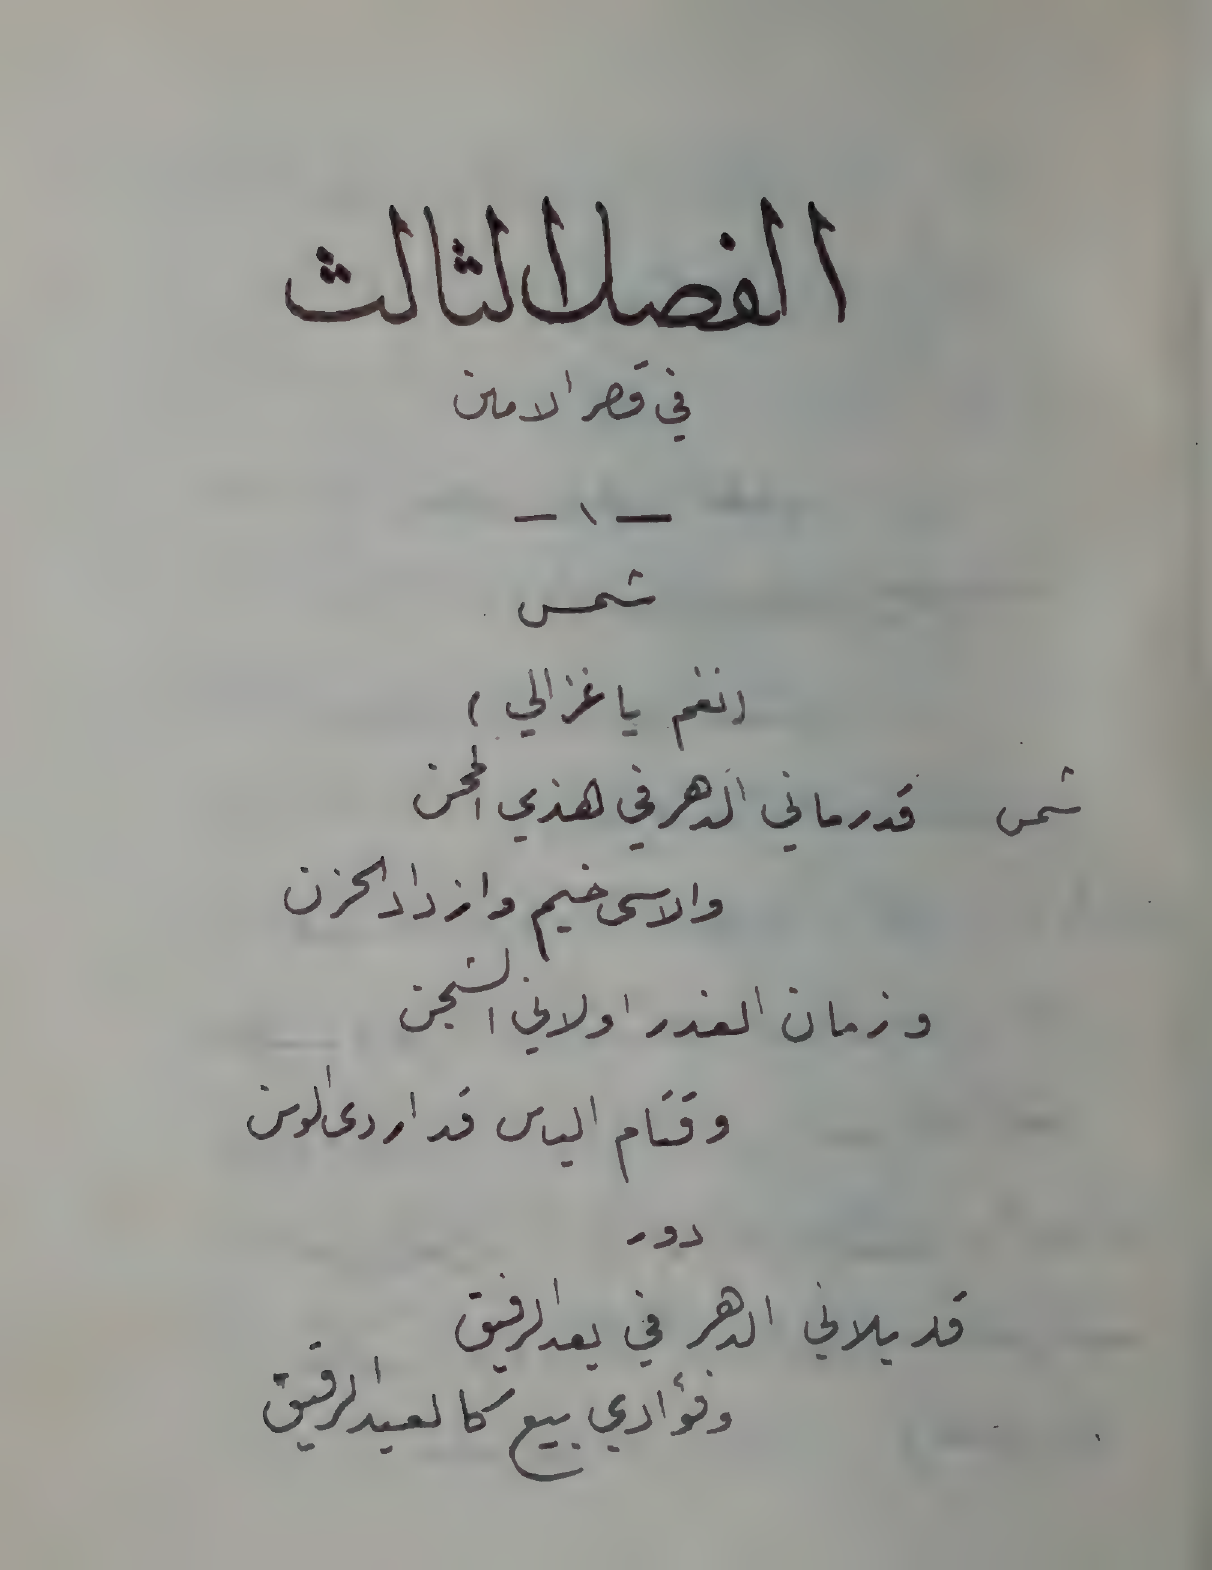 الفصل الثالث
في قصر الامين
— ١ —
شمس
(نغم يا غزالي)
شمس قد رماني الدهر في هذي المحن
والاسى خيم وازداد الحزن
وزمان الغدر اولاني الشجن
وقتام الياس قد اردى الوسن
دور
قد بلاني الدهر في بعد الرفيق
وفؤادي بيع كالعبد الرقيق